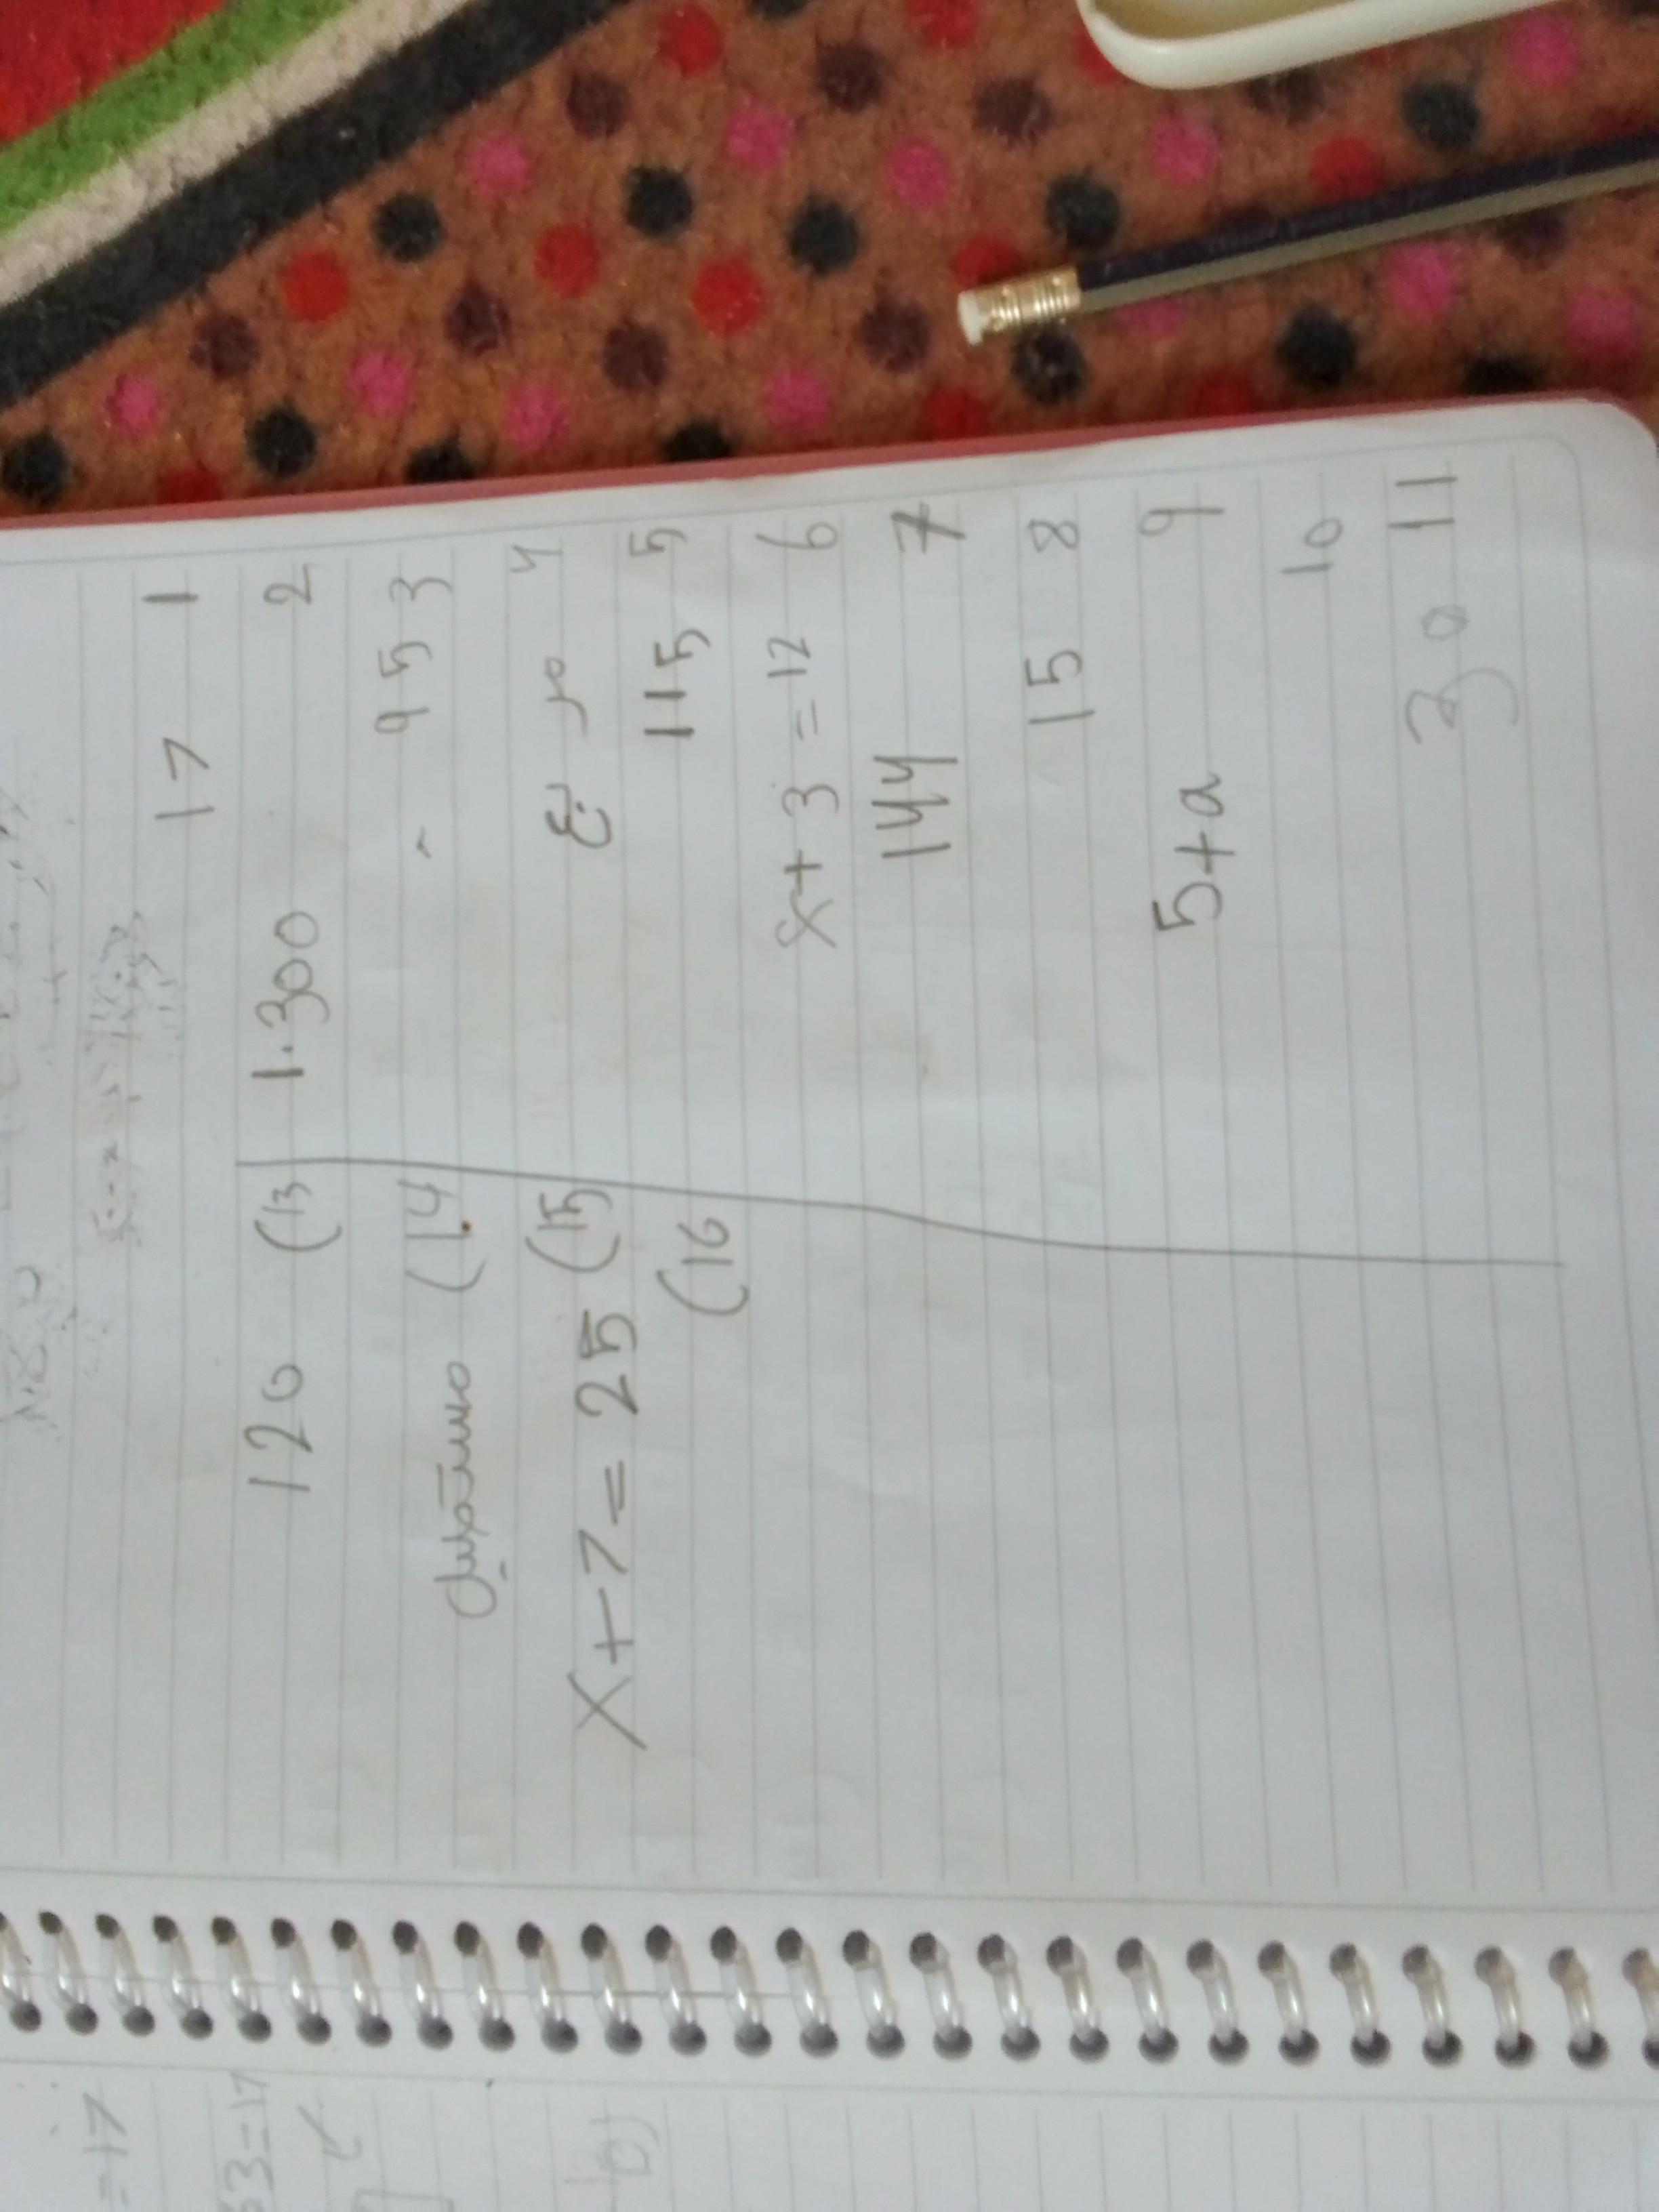 17 1
1.300 2
95 3
مربع 4
115 5
x + 3 = 12 6
144 7
15 8
5+a 9
10
30 11
120 (13
(14
x + 7 = 25 (15
(16
= 17
3=17